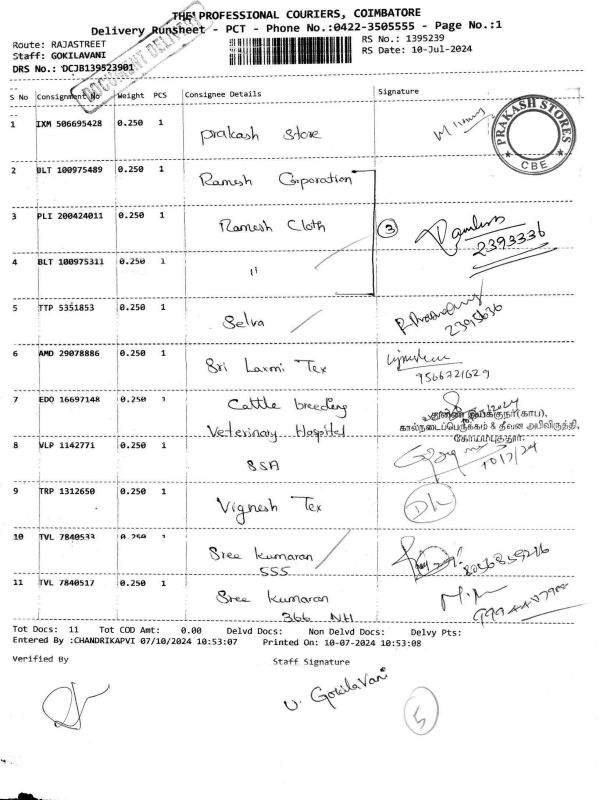 THE PROFESSIONAL COURIERS, COIMBATORE
Delivery Runsheet - PCT - Phone No.:0422-3505555 - Page No.:1
Route: RAJASTREET
RS No.: 1395239
Staff: GOKILAVANI
RS Date: 10-Jul-2024
DRS No.: DCJB139523901
DOCUMENT DELIVERY
S No Consignment No Weight PCS Consignee Details Signature
1 IXM 506695428 0.250 1 Prakash Store
PRAKASH STORES
CBE
2 BLT 100975489 0.250 1 Ramesh Corporation
3 PLI 200424011 0.250 1 Ramesh Cloth 3
2393336
4 BLT 100975311 0.250 1 "
5 TTP 5351853 0.250 1 Selva
2395636
6 AMD 29078886 0.250 1 Sri Laxmi Tex
9566721629
7 EDO 16697148 0.250 1 Cattle breeding
Veterinary Hospital
கால்நடைப்பெருக்கம் & தீவன அபிவிருத்தி,
கோயம்புத்தூர்.
8 VLP 1142771 0.250 1 SSA
10/7/24
9 TRP 1312650 0.250 1 Vignesh Tex
10 TVL 7840533 0.250 1 Sree Kumaran
555
11 TVL 7840517 0.250 1 Sree Kumaran
366 NH
Tot Docs: 11 Tot COD Amt: 0.00 Delvd Docs: Non Delvd Docs: Delvy Pts:
Entered By :CHANDRIKAPVI 07/10/2024 10:53:07 Printed On: 10-07-2024 10:53:08
Verified By Staff Signature
U. GokilaVani
5